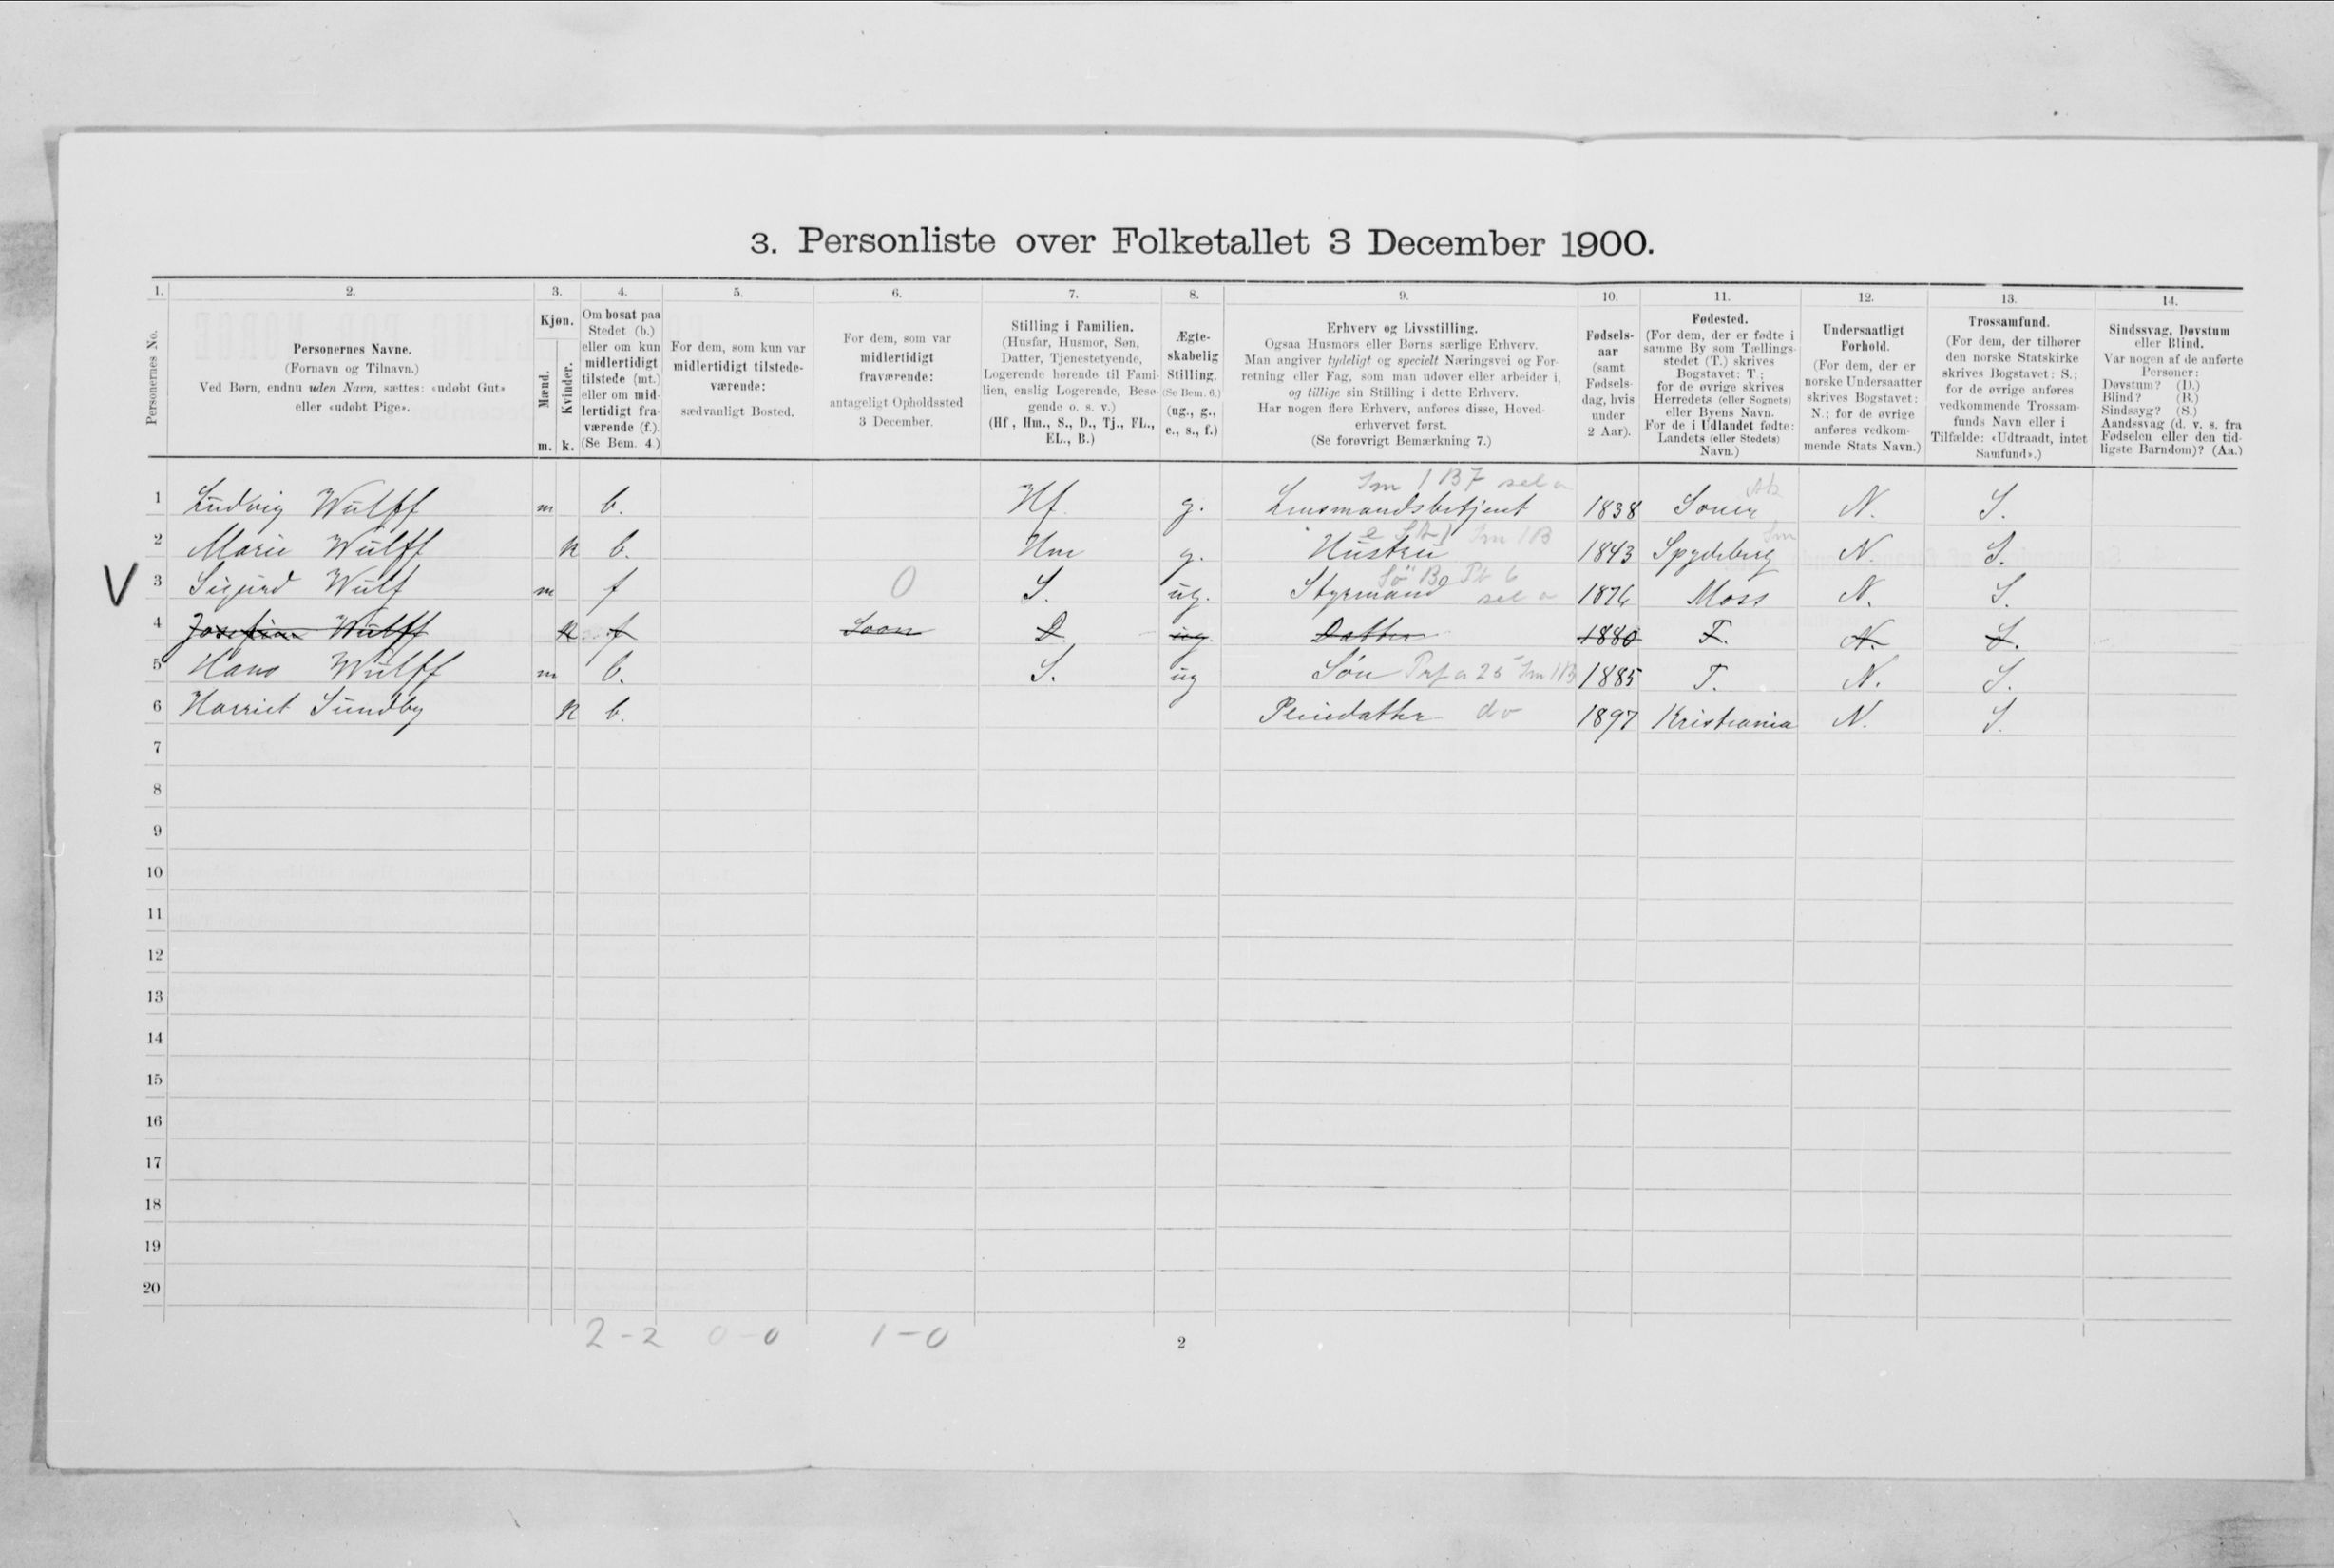 3. Personliste over Folketallet 3 December 1900.
1. 2. 3. 4. 5. 6. 7. 8. 9. 10. 11. 12. 13. 14.
Personernes No.
Personernes Navne.
(Fornavn og Tilnavn.)
Ved Børn, endnu uden Navn, sættes: «udøbt Gut»
eller «udøbt Pige».
Kjøn.
Mænd.
Kvinder.
m. k.
Om bosat paa
Stedet (b.)
eller om kun
midlertidigt
tilstede (mt.)
eller om mid-
lertidigt fra-
værende (f.).
(Se Bem. 4.)
For dem, som kun var
midlertidigt tilstede-
værende:
sædvanligt Bosted.
For dem, som var
midlertidigt
fraværende:
antageligt Opholdssted
3 December.
Stilling i Familien.
(Husfar, Husmor, Søn,
Datter, Tjenestetyende,
Logerende hørende til Fami-
lien, enslig Logerende, Besø-
gende o. s. v.)
(Hf, Hm., S., D., Tj., FL.,
EL., B.)
Ægte-
skabelig
Stilling.
(Se Bem. 6.)
(ug., g.,
e., s., f.)
Erhverv og Livsstilling.
Ogsaa Husmors eller Børns særlige Erhverv.
Man angiver tydeligt og specielt Næringsvei og For-
retning eller Fag, som man udøver eller arbeider i,
og tillige sin Stilling i dette Erhverv.
Har nogen flere Erhverv, anføres disse, Hoved-
erhvervet først.
(Se forøvrigt Bemærkning 7.)
Fødsels-
aar
(samt
Fødsels-
dag, hvis
under
2 Aar).
Fødested.
(For dem, der er fødte i
samme By som Tællings-
stedet (T.) skrives
Bogstavet: T.;
for de øvrige skrives
Herredets (eller Sognets)
eller Byens Navn.
For de i Udlandet fødte:
Landets (eller Stedets)
Navn.)
Undersaatligt
Forhold.
(For dem, der er
norske Undersaatter
skrives Bogstavet:
N.; for de øvrige
anføres vedkom-
mende Stats Navn.)
Trossamfund.
(For dem, der tilhører
den norske Statskirke
skrives Bogstavet: S.;
for de øvrige anføres
vedkommende Trossam-
funds Navn eller i
Tilfælde: «Udtraadt, intet
Samfund».)
Sindssvag, Døvstum
eller Blind.
Var nogen af de anførte
Personer:
Døvstum? (D.)
Blind? (B.)
Sindssyg? (S.)
Aandssvag (d. v. s. fra
Fødselen eller den tid-
ligste Barndom)? (Aa.)
1 Ludvig Wulff m b. Hf. g. Lensmandsbetjent 1838 Soner N. S.
2 Marie Wulff k b. Hm g. Hustru 1843 Spydeberg N. S.
V 3 Sigurd Wulf m f 0 S. ug. Styrmand 1876 Moss N. S.
4 Josefine Wulff k f Soon D ug Datter 1880 T. N. S.
5 Hans Wulff m b. S. ug Søn 1885 T. N. S.
6 Harriet Sundby k b. Pleiedatter do 1897 Kristiania N. S.
7
8
9
10
11
12
13
14
15
16
17
18
19
20
2-2 0-0 1-0
2